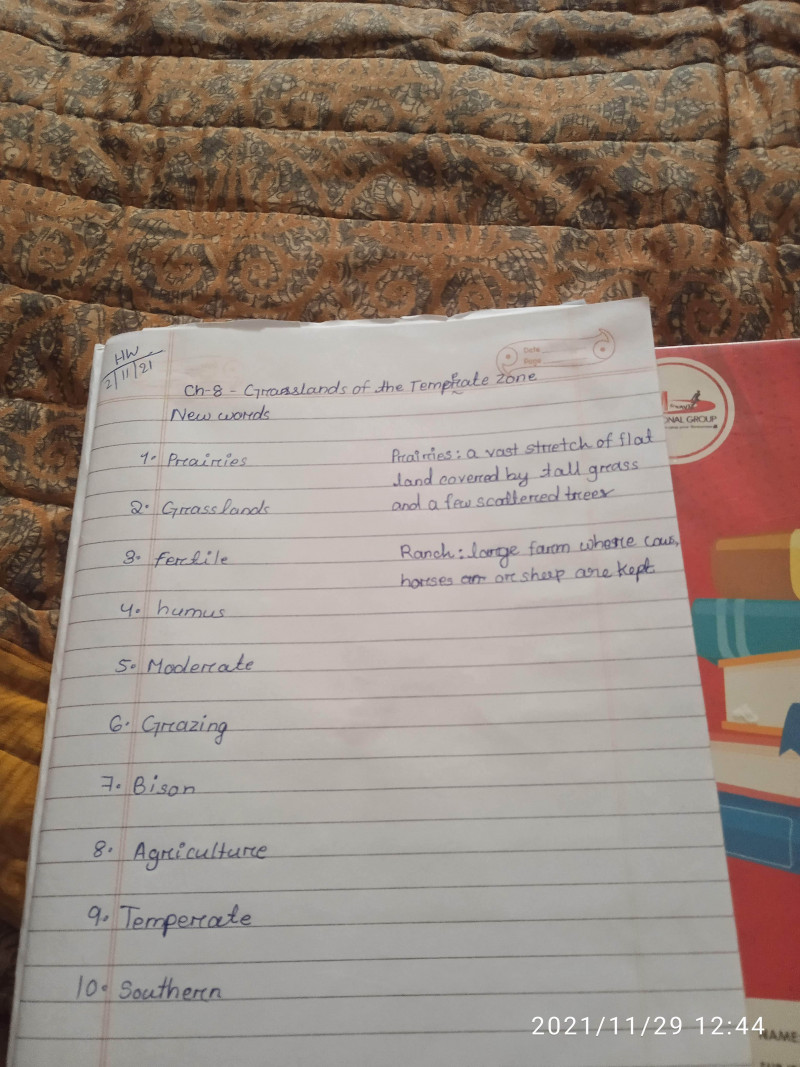 HW
2/11/21
Date
Page
Ch-8 - Grasslands of the Temperate Zone
New words
1. Prairies
2. Grasslands
3. fertile
4. humus
5. Moderate
6. Grazing
7. Bison
8. Agriculture
9. Temperate
10. Southern
Prairies: a vast stretch of flat
land covered by tall grass
and a few scattered trees
Ranch: large farm where cows,
horses or sheep are kept
ONAL GROUP
NAME:
2021/11/29 12:44